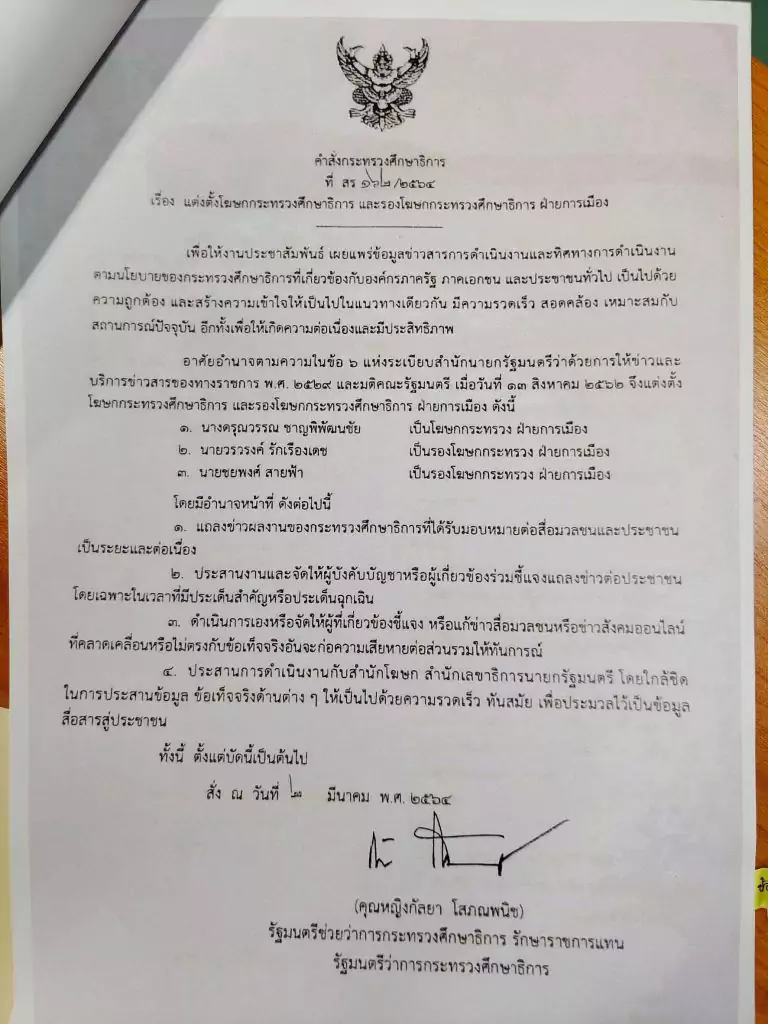 คำสั่งกระทรวงศึกษาธิการ
ที่ สร ๑๖๒/๒๕๖๔
เรื่อง แต่งตั้งโฆษกกระทรวงศึกษาธิการ และรองโฆษกกระทรวงศึกษาธิการ ฝ่ายการเมือง
เพื่อให้งานประชาสัมพันธ์ เผยแพร่ข้อมูลข่าวสารการดำเนินงานและทิศทางการดำเนินงาน
ตามนโยบายของกระทรวงศึกษาธิการที่เกี่ยวข้องกับองค์กรภาครัฐ ภาคเอกชน และประชาชนทั่วไป เป็นไปด้วย
ความถูกต้อง และสร้างความเข้าใจให้เป็นไปในแนวทางเดียวกัน มีความรวดเร็ว สอดคล้อง เหมาะสมกับ
สถานการณ์ปัจจุบัน อีกทั้งเพื่อให้เกิดความต่อเนื่องและมีประสิทธิภาพ
อาศัยอำนาจตามความในข้อ ๖ แห่งระเบียบสำนักนายกรัฐมนตรีว่าด้วยการให้ข่าวและ
บริการข่าวสารของทางราชการ พ.ศ. ๒๕๒๙ และมติคณะรัฐมนตรี เมื่อวันที่ ๑๓ สิงหาคม ๒๕๖๒ จึงแต่งตั้ง
โฆษกกระทรวงศึกษาธิการ และรองโฆษกกระทรวงศึกษาธิการ ฝ่ายการเมือง ดังนี้
๑. นางดรุณวรรณ ชาญพิพัฒนชัย เป็นโฆษกกระทรวง ฝ่ายการเมือง
๒. นายวรวรงค์ รักเรืองเดช เป็นรองโฆษกกระทรวง ฝ่ายการเมือง
๓. นายชยพงศ์ สายฟ้า เป็นรองโฆษกกระทรวง ฝ่ายการเมือง
โดยมีอำนาจหน้าที่ ดังต่อไปนี้
๑. แถลงข่าวผลงานของกระทรวงศึกษาธิการที่ได้รับมอบหมายต่อสื่อมวลชนและประชาชน
เป็นระยะและต่อเนื่อง
๒. ประสานงานและจัดให้ผู้บังคับบัญชาหรือผู้เกี่ยวข้องร่วมชี้แจงแถลงข่าวต่อประชาชน
โดยเฉพาะในเวลาที่มีประเด็นสำคัญหรือประเด็นฉุกเฉิน
๓. ดำเนินการเองหรือจัดให้ผู้ที่เกี่ยวข้องชี้แจง หรือแก้ข่าวสื่อมวลชนหรือข่าวสังคมออนไลน์
ที่คลาดเคลื่อนหรือไม่ตรงกับข้อเท็จจริงอันจะก่อความเสียหายต่อส่วนรวมให้ทันการณ์
๔. ประสานการดำเนินงานกับสำนักโฆษก สำนักเลขาธิการนายกรัฐมนตรี โดยใกล้ชิด
ในการประสานข้อมูล ข้อเท็จจริงด้านต่าง ๆ ให้เป็นไปด้วยความรวดเร็ว ทันสมัย เพื่อประมวลไว้เป็นข้อมูล
สื่อสารสู่ประชาชน
ทั้งนี้ ตั้งแต่บัดนี้เป็นต้นไป
สั่ง ณ วันที่ ๒ มีนาคม พ.ศ. ๒๕๖๔
(คุณหญิงกัลยา โสภณพนิช)
รัฐมนตรีช่วยว่าการกระทรวงศึกษาธิการ รักษาราชการแทน
รัฐมนตรีว่าการกระทรวงศึกษาธิการ